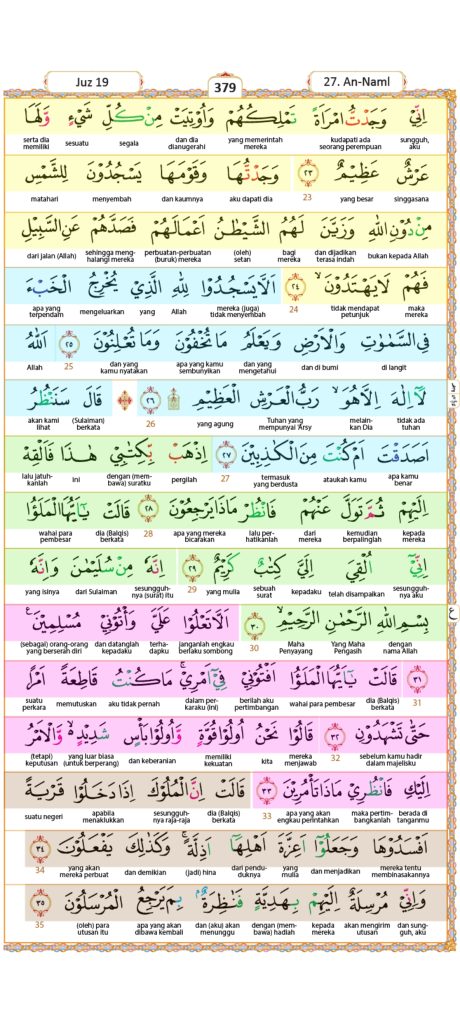 Juz 19
379
27. An-Naml
اِنِّيْ وَجَدْتُّ امْرَاَةً تَمْلِكُهُمْ وَاُوْتِيَتْ مِنْ كُلِّ شَيْءٍ وَّلَهَا
sungguh, aku kudapati ada seorang perempuan yang memerintah mereka dan dia dianugerahi segala sesuatu serta dia memiliki
عَرْشٌ عَظِيْمٌ ٢٣ وَجَدْتُّهَا وَقَوْمَهَا يَسْجُدُوْنَ لِلشَّمْسِ
singgasana yang besar 23 aku dapati dia dan kaumnya menyembah matahari
مِنْ دُوْنِ اللّٰهِ وَزَيَّنَ لَهُمُ الشَّيْطٰنُ اَعْمَالَهُمْ فَصَدَّهُمْ عَنِ السَّبِيْلِ
bukan kepada Allah dan dijadikan terasa indah bagi mereka (oleh) setan perbuatan-perbuatan (buruk) mereka sehingga meng-halangi mereka dari jalan (Allah)
فَهُمْ لَا يَهْتَدُوْنَۙ ٢٤ اَلَّا يَسْجُدُوْا لِلّٰهِ الَّذِيْ يُخْرِجُ الْخَبْءَ
maka mereka tidak mendapat petunjuk 24 mereka (juga) tidak menyembah Allah yang mengeluarkan apa yang terpendam
فِى السَّمٰوٰتِ وَالْاَرْضِ وَيَعْلَمُ مَا تُخْفُوْنَ وَمَا تُعْلِنُوْنَ ٢٥ اَللّٰهُ
di langit dan di bumi dan yang mengetahui apa yang kamu sembunyikan dan yang kamu nyatakan 25 Allah
لَآ اِلٰهَ اِلَّا هُوَۙ رَبُّ الْعَرْشِ الْعَظِيْمِ ٢٦ قَالَ سَنَنْظُرُ
tidak ada tuhan melain-kan Dia Tuhan yang mempunyai 'Arsy yang agung 26 (Sulaiman) berkata akan kami lihat
اَصَدَقْتَ اَمْ كُنْتَ مِنَ الْكٰذِبِيْنَ ٢٧ اِذْهَبْ بِّكِتٰبِيْ هٰذَا فَاَلْقِهْ
apa kamu benar ataukah kamu termasuk yang berdusta 27 pergilah dengan (mem-bawa) suratku ini lalu jatuh-kanlah
اِلَيْهِمْ ثُمَّ تَوَلَّ عَنْهُمْ فَانْظُرْ مَاذَا يَرْجِعُوْنَ ٢٨ قَالَتْ يٰٓاَيُّهَا الْمَلَؤُا
kepada mereka kemudian berpalinglah dari mereka lalu per-hatikanlah apa yang mereka bicarakan 28 dia (Balqis) berkata wahai para pembesar
اِنِّيْٓ اُلْقِيَ اِلَيَّ كِتٰبٌ كَرِيْمٌ ٢٩ اِنَّهٗ مِنْ سُلَيْمٰنَ وَاِنَّهٗ
sesungguh-nya aku telah disampaikan kepadaku sebuah surat yang mulia 29 sesungguh-nya (surat) itu dari Sulaiman yang isinya
بِسْمِ اللّٰهِ الرَّحْمٰنِ الرَّحِيْمِۙ ٣٠ اَلَّا تَعْلُوْا عَلَيَّ وَأْتُوْنِيْ مُسْلِمِيْنَࣖ
dengan nama Allah Yang Maha Pengasih Maha Penyayang 30 janganlah engkau berlaku sombong terha-dapku dan datanglah kepadaku (sebagai) orang-orang yang berserah diri
٣١ قَالَتْ يٰٓاَيُّهَا الْمَلَؤُا اَفْتُوْنِيْ فِيْٓ اَمْرِيْۚ مَا كُنْتُ قَاطِعَةً اَمْرًا
31 dia (Balqis) berkata wahai para pembesar berilah aku pertimbangan dalam per-karaku (ini) aku tidak pernah memutuskan suatu perkara
حَتّٰى تَشْهَدُوْنِ ٣٢ قَالُوْا نَحْنُ اُولُوْا قُوَّةٍ وَّاُولُوْا بَأْسٍ شَدِيْدٍ ەۙ وَّالْاَمْرُ
sebelum kamu hadir dalam majelisku 32 mereka menjawab kita memiliki kekuatan dan keberanian yang luar biasa (untuk berperang) (tetapi) keputusan
اِلَيْكِ فَانْظُرِيْ مَاذَا تَأْمُرِيْنَ ٣٣ قَالَتْ اِنَّ الْمُلُوْكَ اِذَا دَخَلُوْا قَرْيَةً
berada di tanganmu maka pertim-bangkanlah apa yang akan engkau perintahkan 33 dia (Balqis) berkata sesungguh-nya raja-raja apabila menaklukkan suatu negeri
اَفْسَدُوْهَا وَجَعَلُوْٓا اَعِزَّةَ اَهْلِهَآ اَذِلَّةًۚ وَكَذٰلِكَ يَفْعَلُوْنَ ٣٤
mereka tentu membinasakannya dan menjadikan yang mulia dari pendu-duknya (jadi) hina dan demikian yang akan mereka perbuat 34
وَاِنِّيْ مُرْسِلَةٌ اِلَيْهِمْ بِهَدِيَّةٍ فَنٰظِرَةٌۢ بِمَ يَرْجِعُ الْمُرْسَلُوْنَ ٣٥
dan sung-guh, aku akan mengirim utusan kepada mereka dengan (mem-bawa) hadiah dan (aku) akan menunggu apa yang akan dibawa kembali (oleh) para utusan itu 35
ع